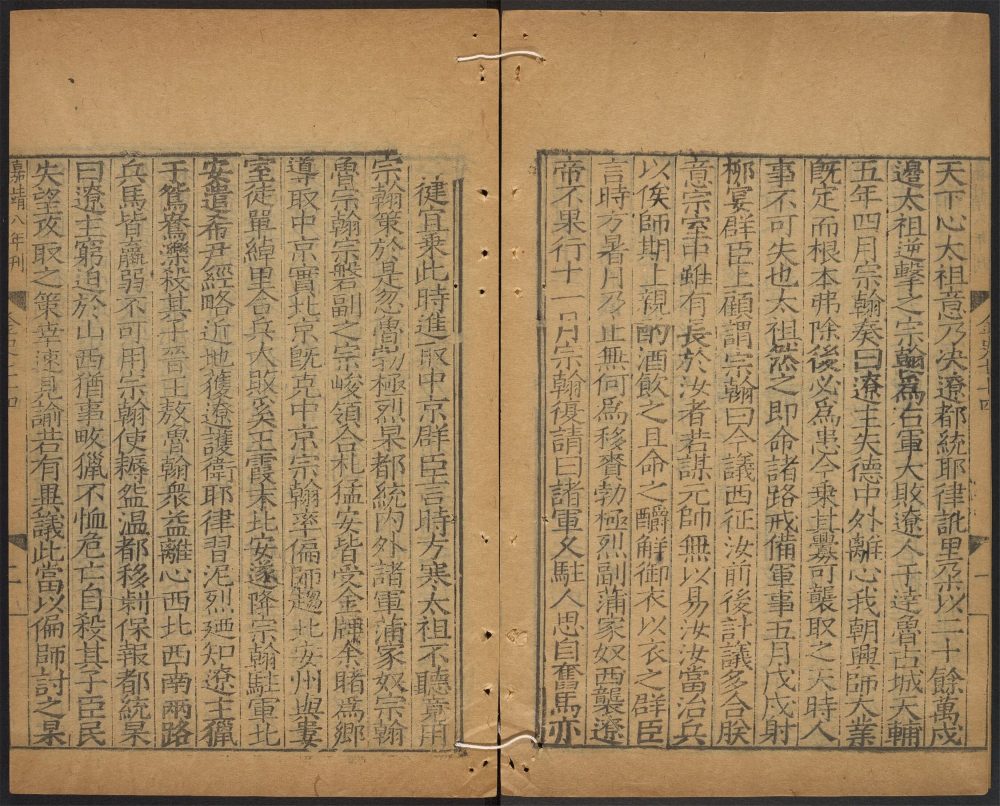 天下心太祖意乃決遼都統耶律訛里朶以二十餘萬戍
邊太祖逆擊之宗翰爲右軍大敗遼人于達魯古城天輔
五年四月宗翰奏曰遼主失德中外離心我朝興師大業
旣定而根本弗除後必爲患今乗其釁可襲取之天時人
事不可失也太祖然之即命諸路戒備軍事五月戊戌射
栁宴群臣上顧謂宗翰曰今議西征汝前後計議多合朕
意宗室中雖有長於汝者若謀元帥無以易汝汝當治兵
以俟師期上親酌酒飲之且命之釂解御衣以衣之群臣
言時方暑月乃止無何爲移賚勃極烈副蒲家奴西襲遼
帝不果行十一月宗翰復請曰諸軍乆駐人思自奮馬亦
金史七十四
一
徤宜乗此時進取中京群臣言時方寒太祖不聽竟用
宗翰策於是忽魯勃極烈杲都統内外諸軍蒲家奴宗翰
宗幹宗磐副之宗峻領合札猛安皆受金牌余睹爲鄉
導取中京實北京旣克中京宗翰率偏師趨北安州與婁
室徒單綽里合兵大敗奚王霞末北安遂降宗翰駐軍北
安遣希尹經略近地獲遼護衛耶律習泥烈廼知遼主獵
于鴛鴦濼殺其子晉王敖魯斡衆益離心西北西南兩路
兵馬皆羸弱不可用宗翰使耨盌溫都移剌保報都統杲
曰遼主窮迫於山西猶事畋獵不恤危亡自殺其子臣民
失望攻取之策幸速見諭若有異議此當以偏師討之杲
嘉靖八年刊